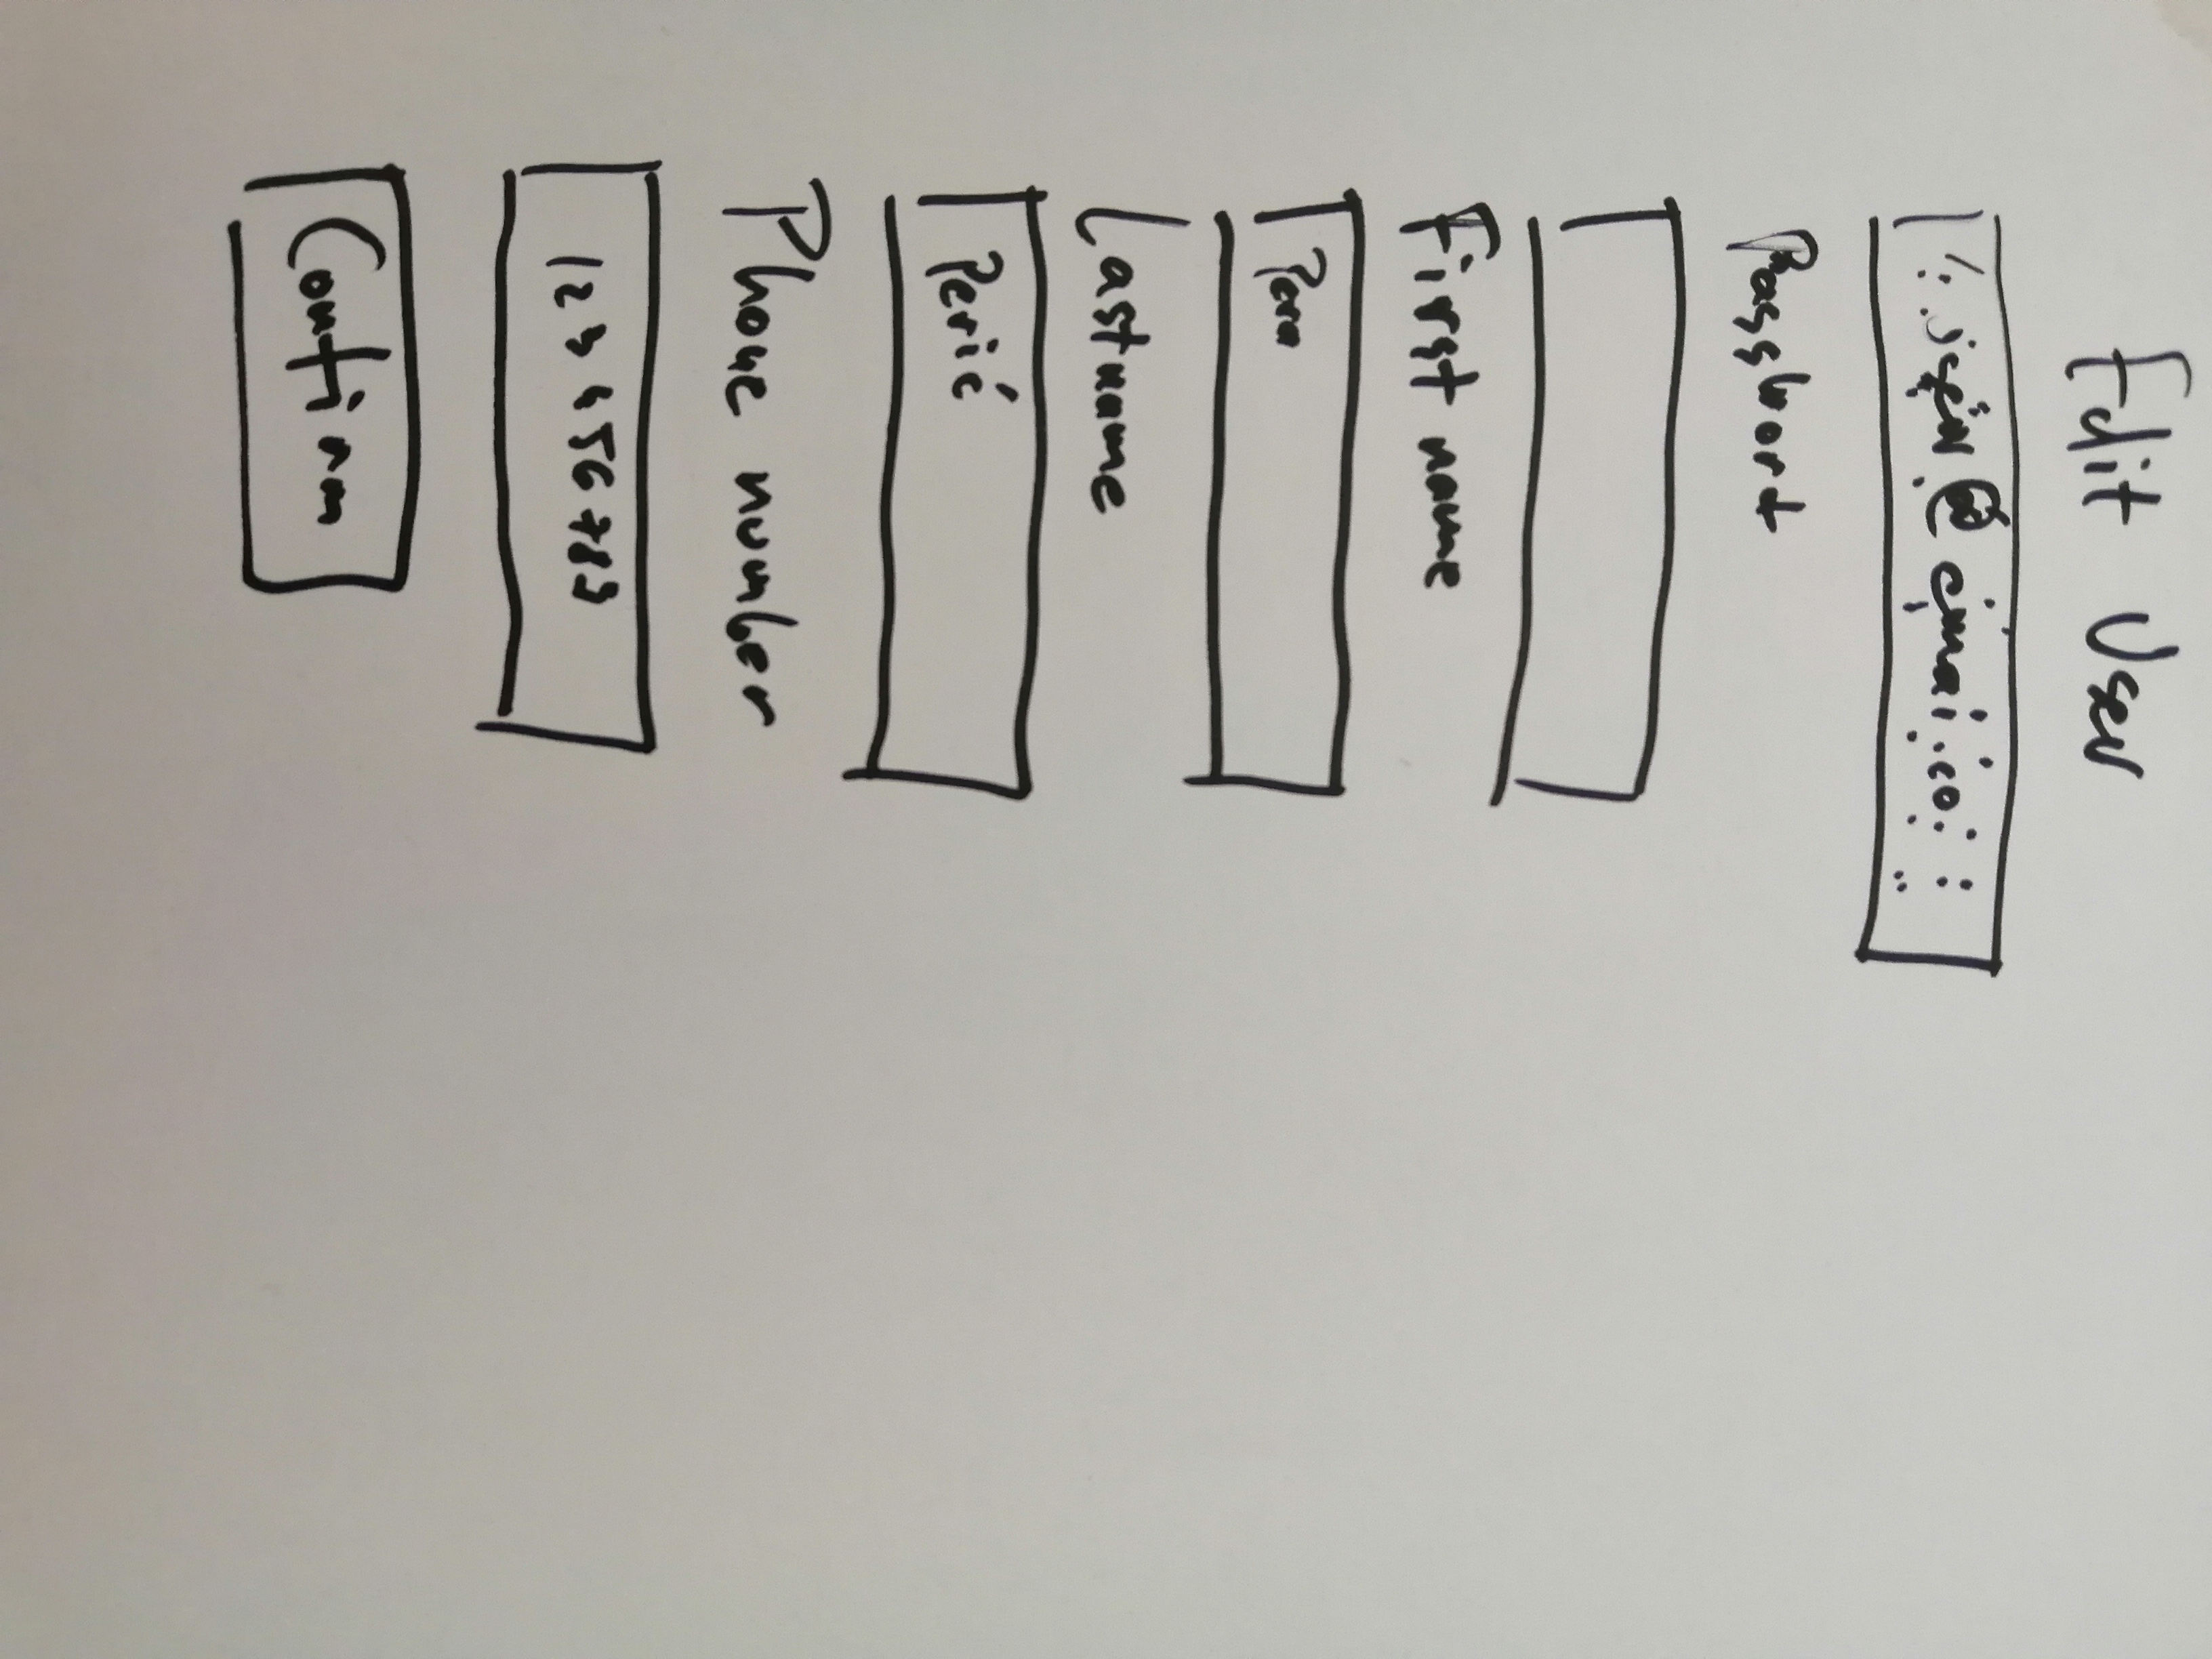 Edit User
@emai.co
Password
First name
Pera
Lastname
Perić
Phone number
123456789
Confirm